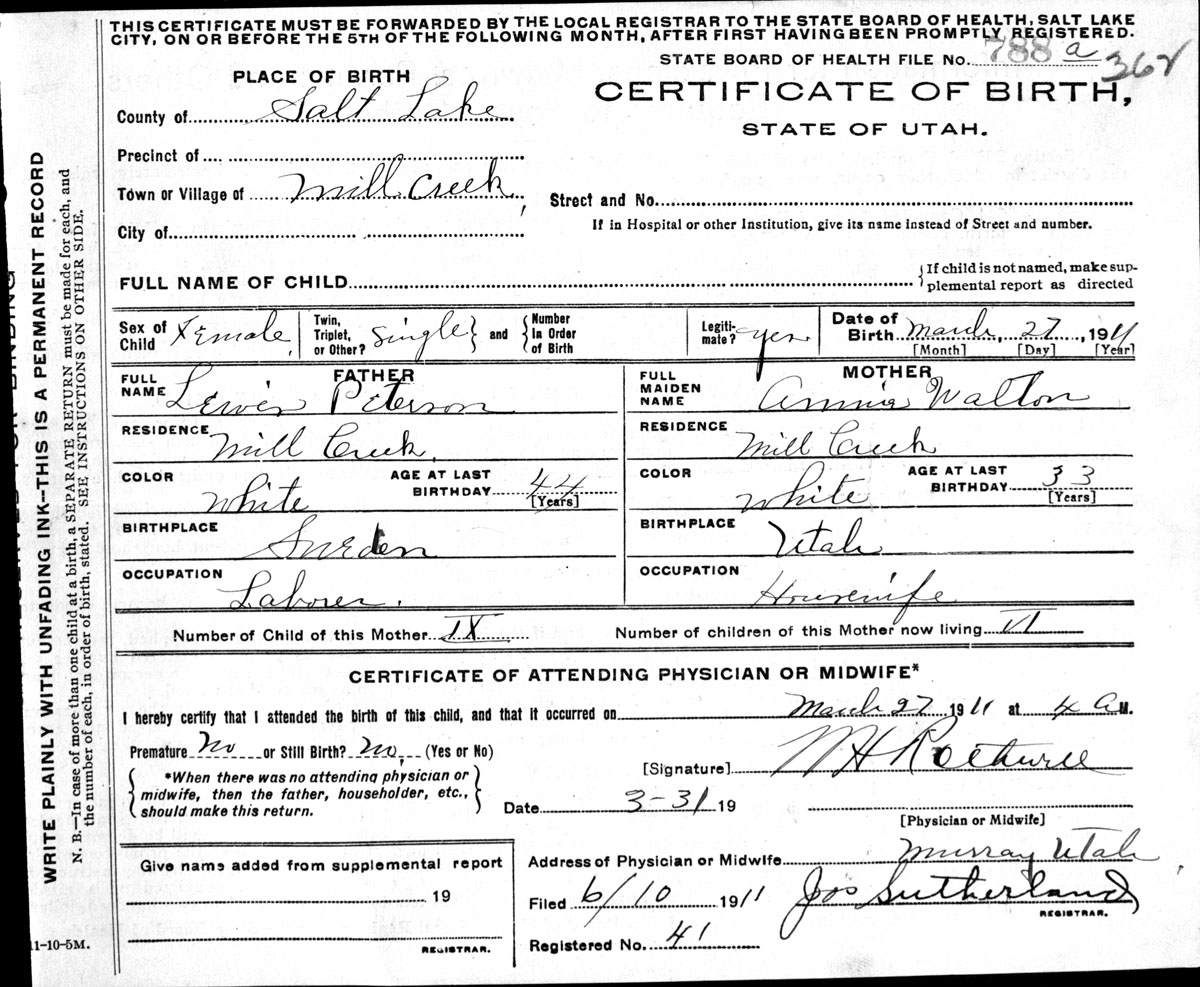 THIS CERTIFICATE MUST BE FORWARDED BY THE LOCAL REGISTRAR TO THE STATE BOARD OF HEALTH, SALT LAKE
CITY, ON OR BEFORE THE 5TH OF THE FOLLOWING MONTH, AFTER FIRST HAVING BEEN PROMPTLY REGISTERED.
STATE BOARD OF HEALTH FILE No. 788 a 362
PLACE OF BIRTH
CERTIFICATE OF BIRTH,
County of Salt Lake
STATE OF UTAH.
Precinct of
Town or Village of Mill Creek
Street and No.
City of
If in Hospital or other Institution, give its name instead of Street and number.
FULL NAME OF CHILD
{If child is not named, make sup-
plemental report as directed
Sex of Child Female
Twin, Triplet, or Other? Single } and { Number In Order of Birth
Legiti-mate? yes
Date of Birth March 27, 1911
[Month] [Day] [Year]
FATHER
FULL NAME Lewis Peterson
RESIDENCE Mill Creek
COLOR White
AGE AT LAST BIRTHDAY 44
[Years]
BIRTHPLACE Sweden
OCCUPATION Laborer.
MOTHER
FULL MAIDEN NAME Annie Walton
RESIDENCE Mill Creek
COLOR White
AGE AT LAST BIRTHDAY 33
[Years]
BIRTHPLACE Utah
OCCUPATION Housewife
Number of Child of this Mother IX Number of children of this Mother now living VI
CERTIFICATE OF ATTENDING PHYSICIAN OR MIDWIFE*
I hereby certify that I attended the birth of this child, and that it occurred on March 27 1911 at 4 A M.
Premature No or Still Birth? No (Yes or No)
*When there was no attending physician or
midwife, then the father, householder, etc.,
should make this return.
[Signature] Rothwell
Date 3-31 19
[Physician or Midwife]
Give name added from supplemental report
19
REGISTRAR.
Address of Physician or Midwife Murray Utah
Filed 6/10 1911 Jos Sutherland
REGISTRAR.
Registered No. 41
11-10-5M.
WRITE PLAINLY WITH UNFADING INK—THIS IS A PERMANENT RECORD
N. B.—In case of more than one child at a birth, a SEPARATE RETURN must be made for each, and
the number of each, in order of birth, stated. SEE INSTRUCTIONS ON OTHER SIDE.